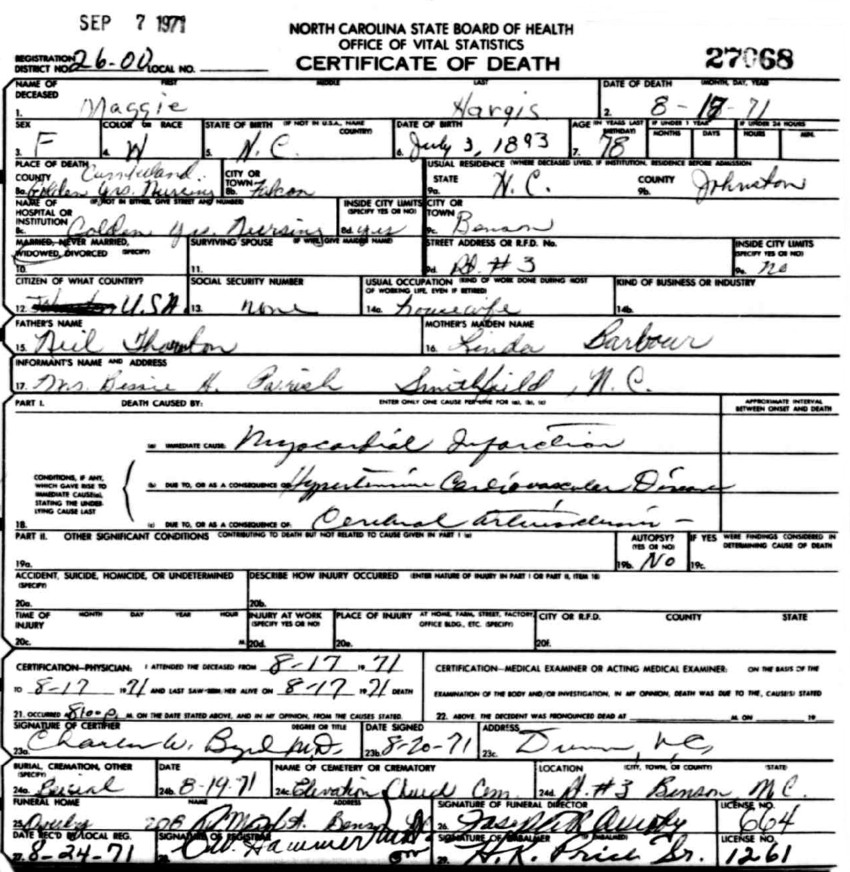 SEP 7 1971
NORTH CAROLINA STATE BOARD OF HEALTH
OFFICE OF VITAL STATISTICS
CERTIFICATE OF DEATH
27068
REGISTRATION DISTRICT NO. 26-00 LOCAL NO.
NAME OF DECEASED FIRST MIDDLE LAST DATE OF DEATH (MONTH, DAY, YEAR)
1. Maggie Hargis 2. 8-17-71
SEX COLOR OR RACE STATE OF BIRTH (IF NOT IN U.S.A., NAME COUNTRY) DATE OF BIRTH AGE (IN YEARS LAST BIRTHDAY) IF UNDER 1 YEAR IF UNDER 24 HOURS
MONTHS DAYS HOURS MIN.
3. F 4. W 5. N.C. 6. July 3, 1893 7. 78
PLACE OF DEATH CITY OR TOWN USUAL RESIDENCE (WHERE DECEASED LIVED. IF INSTITUTION, RESIDENCE BEFORE ADMISSION
COUNTY Cumberland STATE N.C. COUNTY Johnston
8a. Golden Yrs. Nursing 8b. Falcon 9a. 9b.
NAME OF HOSPITAL OR INSTITUTION (IF NOT IN EITHER, GIVE STREET AND NUMBER) INSIDE CITY LIMITS (SPECIFY YES OR NO) CITY OR TOWN
8c. Golden Yrs. Nursing 8d. yes 9c. Benson
MARRIED, NEVER MARRIED, WIDOWED, DIVORCED (SPECIFY) SURVIVING SPOUSE (IF WIFE, GIVE MAIDEN NAME) STREET ADDRESS OR R.F.D. No. INSIDE CITY LIMITS (SPECIFY YES OR NO)
10. 11. 9d. Rt. #3 9e. no
CITIZEN OF WHAT COUNTRY? SOCIAL SECURITY NUMBER USUAL OCCUPATION (KIND OF WORK DONE DURING MOST OF WORKING LIFE, EVEN IF RETIRED) KIND OF BUSINESS OR INDUSTRY
12. U.S.A. 13. none 14a. housewife 14b.
FATHER'S NAME MOTHER'S MAIDEN NAME
15. Neil Thornton 16. Linda Barbour
INFORMANT'S NAME AND ADDRESS
17. Mrs. Bessie H. Parish Smithfield, N.C.
PART I. DEATH CAUSED BY: ENTER ONLY ONE CAUSE PER LINE FOR (a), (b), (c) APPROXIMATE INTERVAL BETWEEN ONSET AND DEATH
(a) IMMEDIATE CAUSE: Myocardial Infarction
CONDITIONS, IF ANY, WHICH GAVE RISE TO IMMEDIATE CAUSE(a), STATING THE UNDERLYING CAUSE LAST
(b) DUE TO, OR AS A CONSEQUENCE OF: Hypertensive Cardiovascular Disease
18. (c) DUE TO, OR AS A CONSEQUENCE OF: Cerebral
PART II. OTHER SIGNIFICANT CONDITIONS CONTRIBUTING TO DEATH BUT NOT RELATED TO CAUSE GIVEN IN PART I (a) AUTOPSY? (YES OR NO) IF YES WERE FINDINGS CONSIDERED IN DETERMINING CAUSE OF DEATH
19a. 19b. No 19c.
ACCIDENT, SUICIDE, HOMICIDE, OR UNDETERMINED (SPECIFY) DESCRIBE HOW INJURY OCCURRED (ENTER NATURE OF INJURY IN PART I OR PART II, ITEM 18)
20a. 20b.
TIME OF INJURY MONTH DAY YEAR HOUR INJURY AT WORK (SPECIFY YES OR NO) PLACE OF INJURY AT HOME, FARM, STREET, FACTORY, OFFICE BLDG., ETC. (SPECIFY) CITY OR R.F.D. COUNTY STATE
20c. M. 20d. 20e. 20f.
CERTIFICATION—PHYSICIAN: I ATTENDED THE DECEASED FROM 8-17 1971 CERTIFICATION—MEDICAL EXAMINER OR ACTING MEDICAL EXAMINER: ON THE BASIS OF THE
TO 8-17 1971 AND LAST SAW HIM/HER ALIVE ON 8-17 1971 DEATH EXAMINATION OF THE BODY AND/OR INVESTIGATION, IN MY OPINION, DEATH WAS DUE TO THE, CAUSE(S) STATED
21. OCCURRED 8:00 P M. ON THE DATE STATED ABOVE, AND IN MY OPINION, FROM THE CAUSES STATED. 22. ABOVE. THE DECEDENT WAS PRONOUNCED DEAD AT M. ON 19
SIGNATURE OF CERTIFIER DEGREE OR TITLE DATE SIGNED ADDRESS
23a. Charles W. Byrd M.D. 23b. 8-20-71 23c. Dunn, NC
BURIAL, CREMATION, OTHER (SPECIFY) DATE NAME OF CEMETERY OR CREMATORY LOCATION (CITY, TOWN, OR COUNTY) STATE
24a. Burial 24b. 8-19-71 24c. Elevation Church Cem. 24d. Rt. #3 Benson, N.C.
FUNERAL HOME NAME ADDRESS SIGNATURE OF FUNERAL DIRECTOR LICENSE NO.
25. 26. 664
DATE REC'D BY LOCAL REG. SIGNATURE OF REGISTRAR SIGNATURE OF EMBALMER LICENSE NO.
27. 8-24-71 28. 29. H.K. Price Sr. 1261